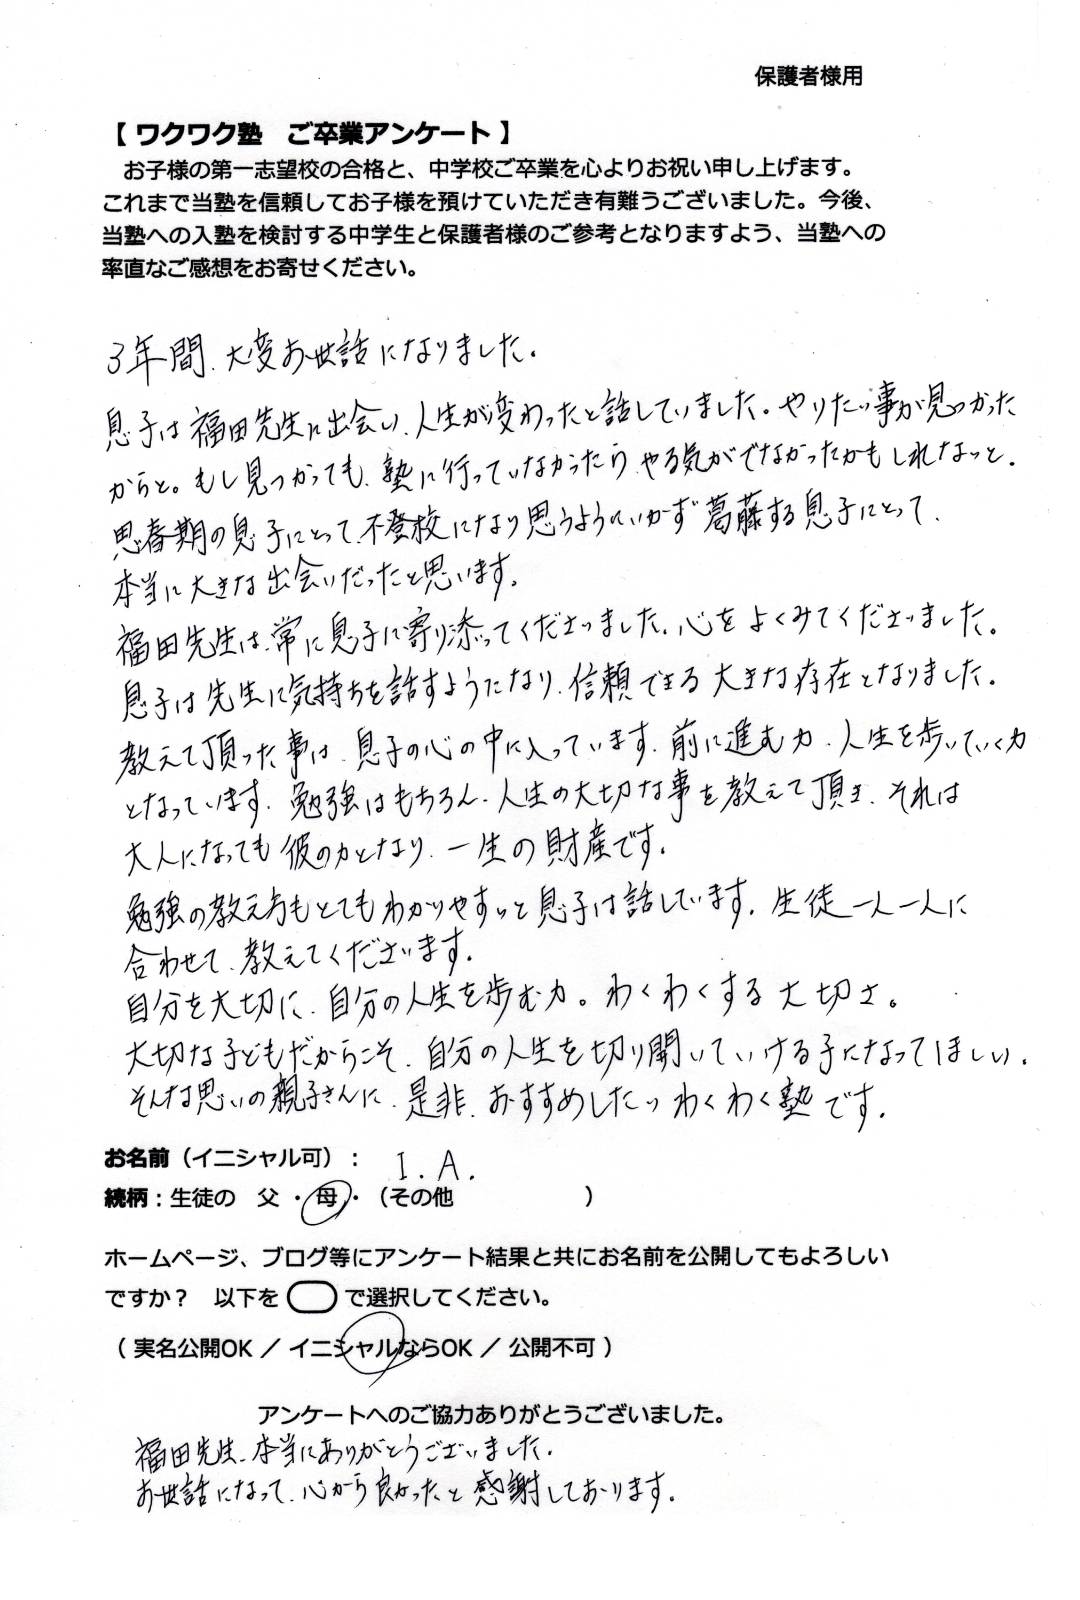 保護者様用
【 ワクワク塾　ご卒業アンケート 】
お子様の第一志望校の合格と、中学校ご卒業を心よりお祝い申し上げます。
これまで当塾を信頼してお子様を預けていただき有難うございました。今後、
当塾への入塾を検討する中学生と保護者様のご参考となりますよう、当塾への
率直なご感想をお寄せください。
3年間、大変お世話になりました。
息子は福田先生に出会い、人生が変わったと話していました。やりたい事が見つかった
からと。もし見つかっても、塾に行っていなかったら、やる気がでなかったかもしれないと。
思春期の息子にとって、不登校になり思うようにいかず葛藤する息子にとって、
本当に大きな出会いだったと思います。
福田先生は、常に息子に寄り添ってくださいました、心をよくみてくださいました。
息子は先生に気持ちを話すようになり、信頼できる大きな存在となりました。
教えて頂った事は、息子の心の中に入っています、前に進む力、人生を歩いていく力
となっています。勉強はもちろん、人生の大切な事を教えて頂き、それは
大人になっても彼の力となり、一生の財産です。
勉強の教え方もとてもわかりやすいと息子は話しています。生徒一人一人に
合わせて、教えてくださいます。
自分を大切に、自分の人生を歩む力。わくわくする大切さ。
大切な子どもだからこそ、自分の人生を切り開いていける子になってほしい、
そんな思いの親子さんに、是非、おすすめしたいわくわく塾です。
お名前（イニシャル可）： I.A.
続柄：生徒の　父 ・ 母 ・（その他　　　　　　）
ホームページ、ブログ等にアンケート結果と共にお名前を公開してもよろしい
ですか？　以下を　　で選択してください。
（ 実名公開OK ／ イニシャルならOK ／ 公開不可 ）
アンケートへのご協力ありがとうございました。
福田先生、本当にありがとうございました。
お世話になって、心から良かったと感謝しております。